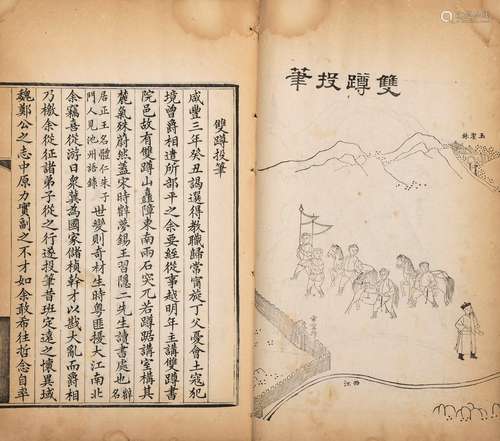 雙蹲投筆
西江
雙蹲投筆
咸豐三年癸丑謁選得教職歸常甯旋丁父憂會土寇犯
境曾爵相遣所部平之余要經從事越明年主講雙蹲書
院邑故有雙蹲山矗障東南兩石突兀若蹲踞講室構其
麓氣殊蔚然蓋宋時辥夢錫王習隱二先生讀書處也辥名
居正王名體仁朱子
門人見池州語錄
世變則奇材生時粵匪擾大江南北
余竊喜從游日眾冀為國家儲楨幹才以戡大亂而爵相
乃檄余從征諸弟子從之行遂投筆昔班定遠之懷異域
魏鄭公之志中原力實副之不才如余敢布往哲念自率